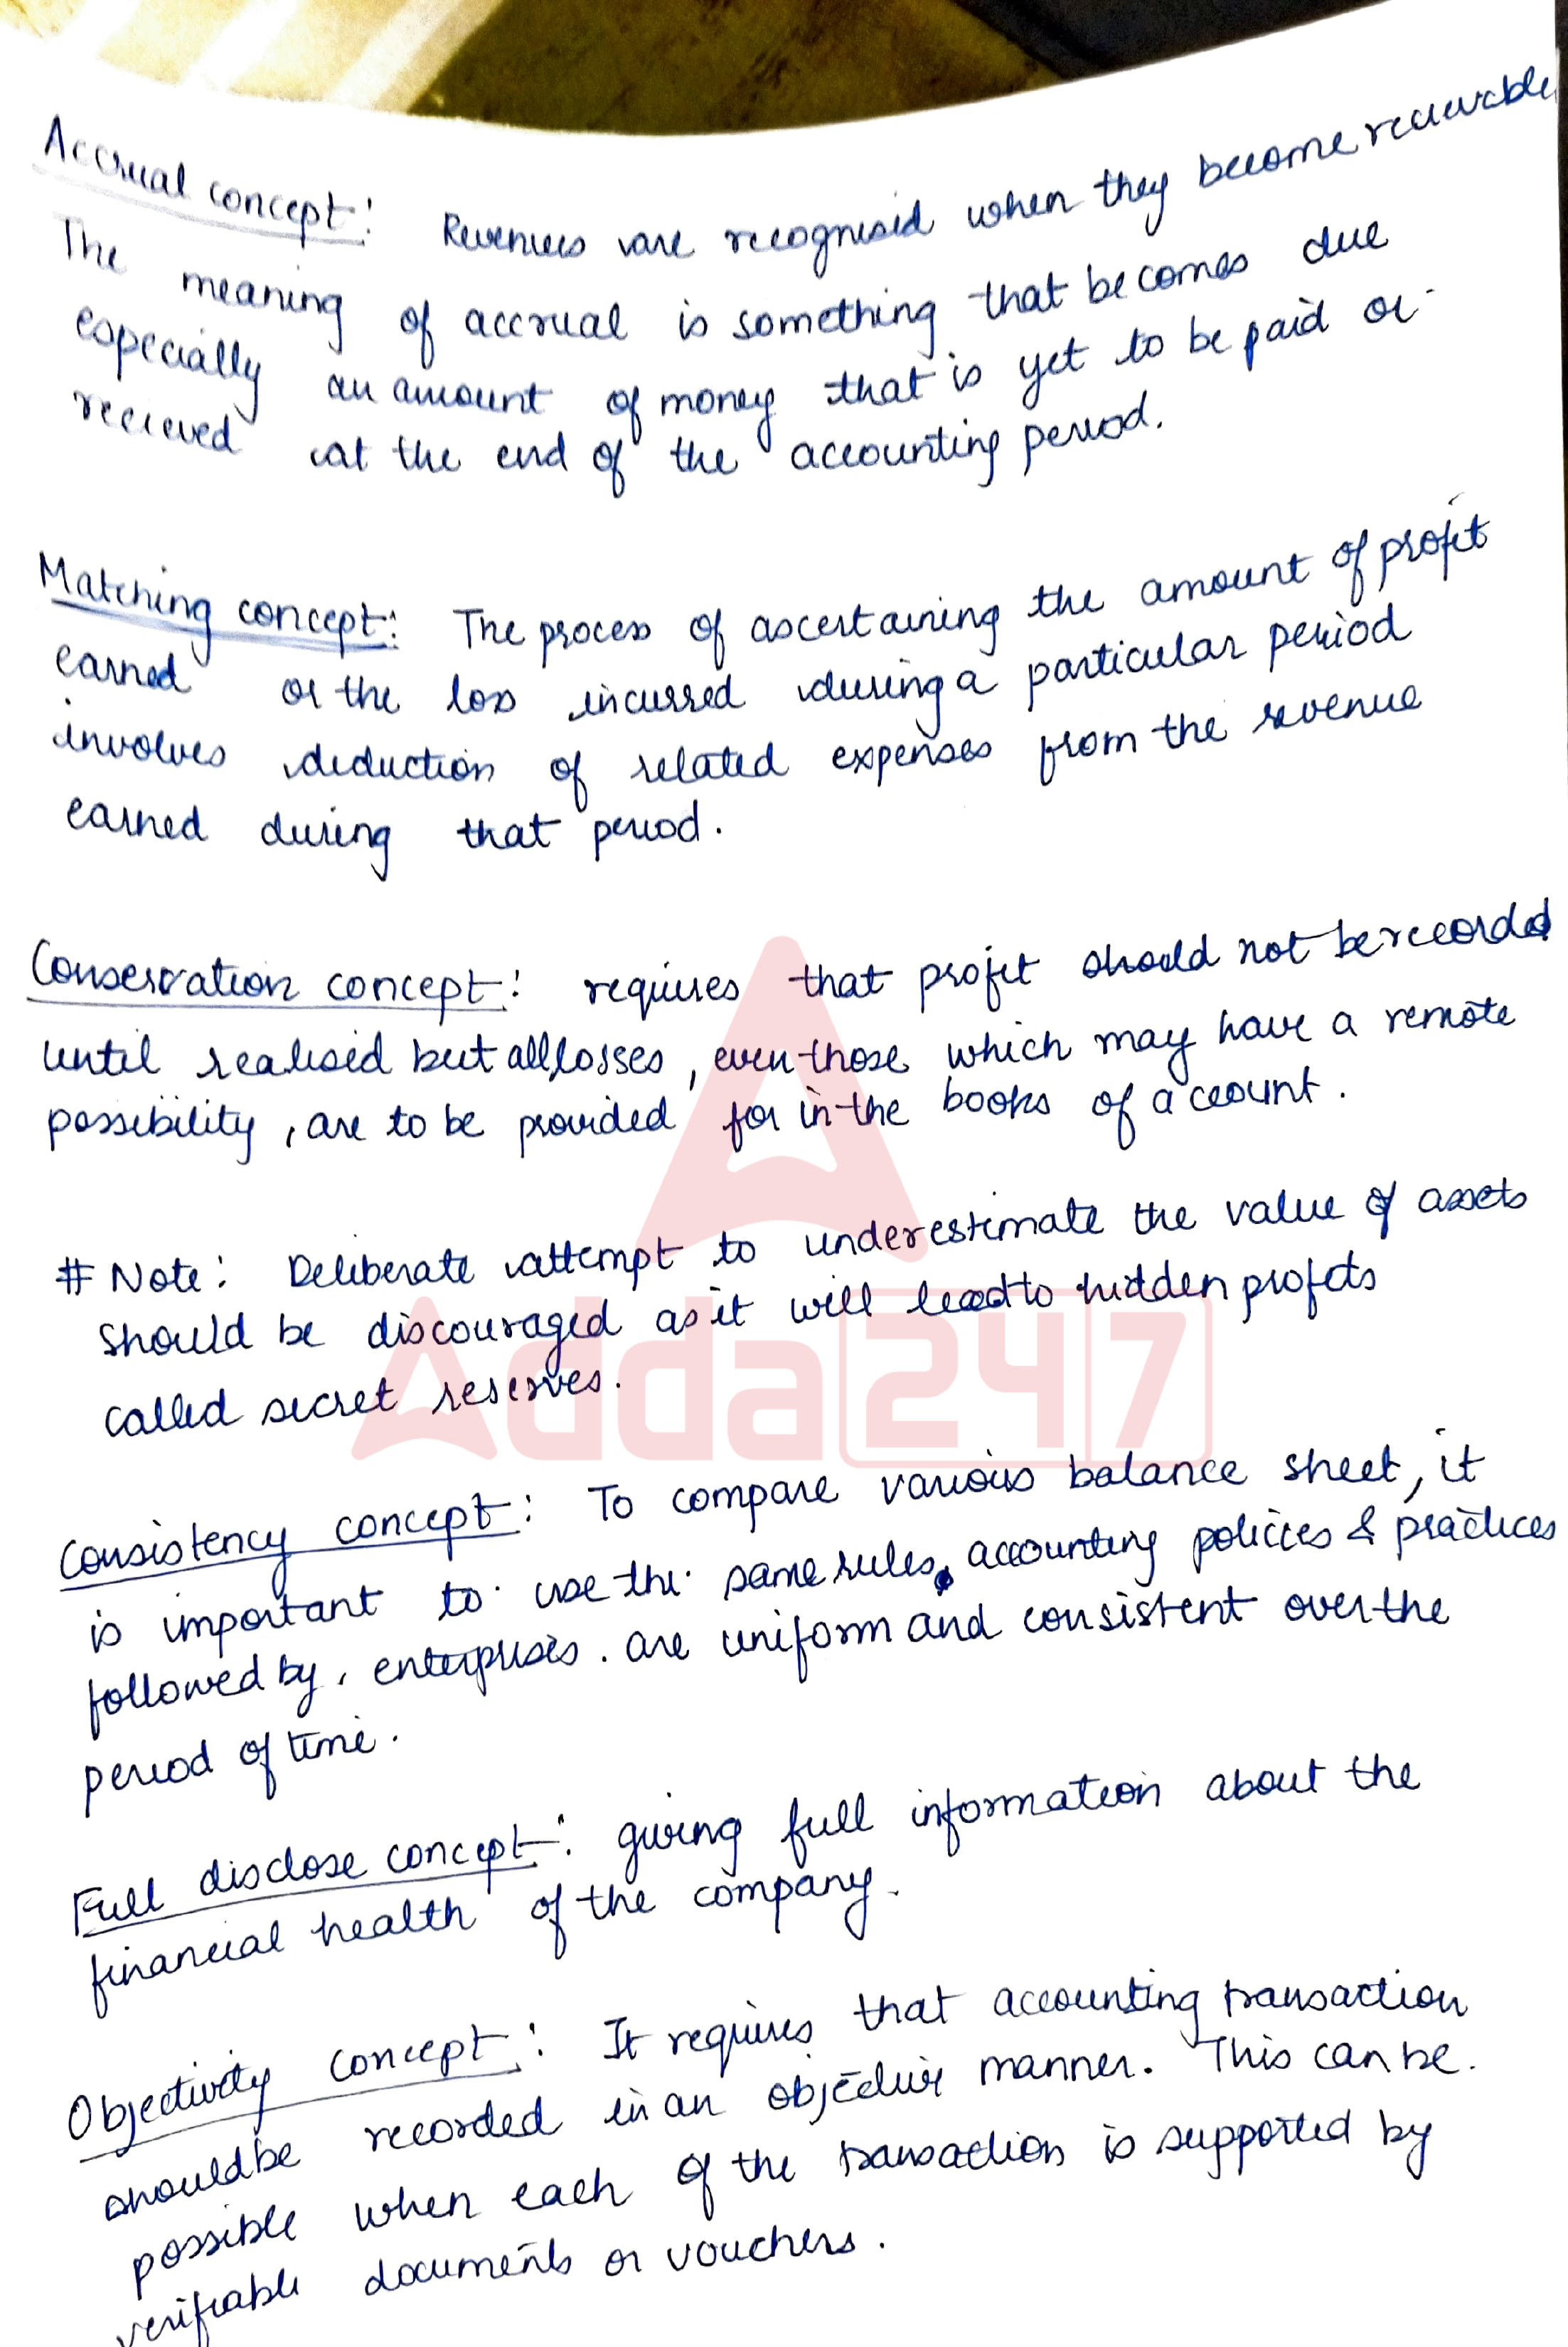 Accrual concept: Revenues are recognised when they become receivable
The meaning of accrual is something that becomes due
especially an amount of money that is yet to be paid or
recieved at the end of the accounting period.
Matching concept: The process of ascertaining the amount of profit
earned or the loss incurred during a particular period
involves deduction of related expenses from the revenue
earned during that period.
Conservation concept: requires that profit should not be recorded
until realised but all losses, even those which may have a remote
possibility, are to be provided for in the books of account.
# Note: Deliberate attempt to underestimate the value of assets
should be discouraged as it will lead to hidden profits
called secret reserves.
Adda247
Consistency concept: To compare various balance sheet, it
is important to use the same rules, accounting policies & practices
followed by, enterprises. are uniform and consistent over the
period of time.
Full disclose concept: giving full information about the
financial health of the company.
Objectivity concept: It requires that accounting transaction
should be recorded in an objective manner. This can be.
possible when each of the transaction is supported by
verifiable documents or vouchers.